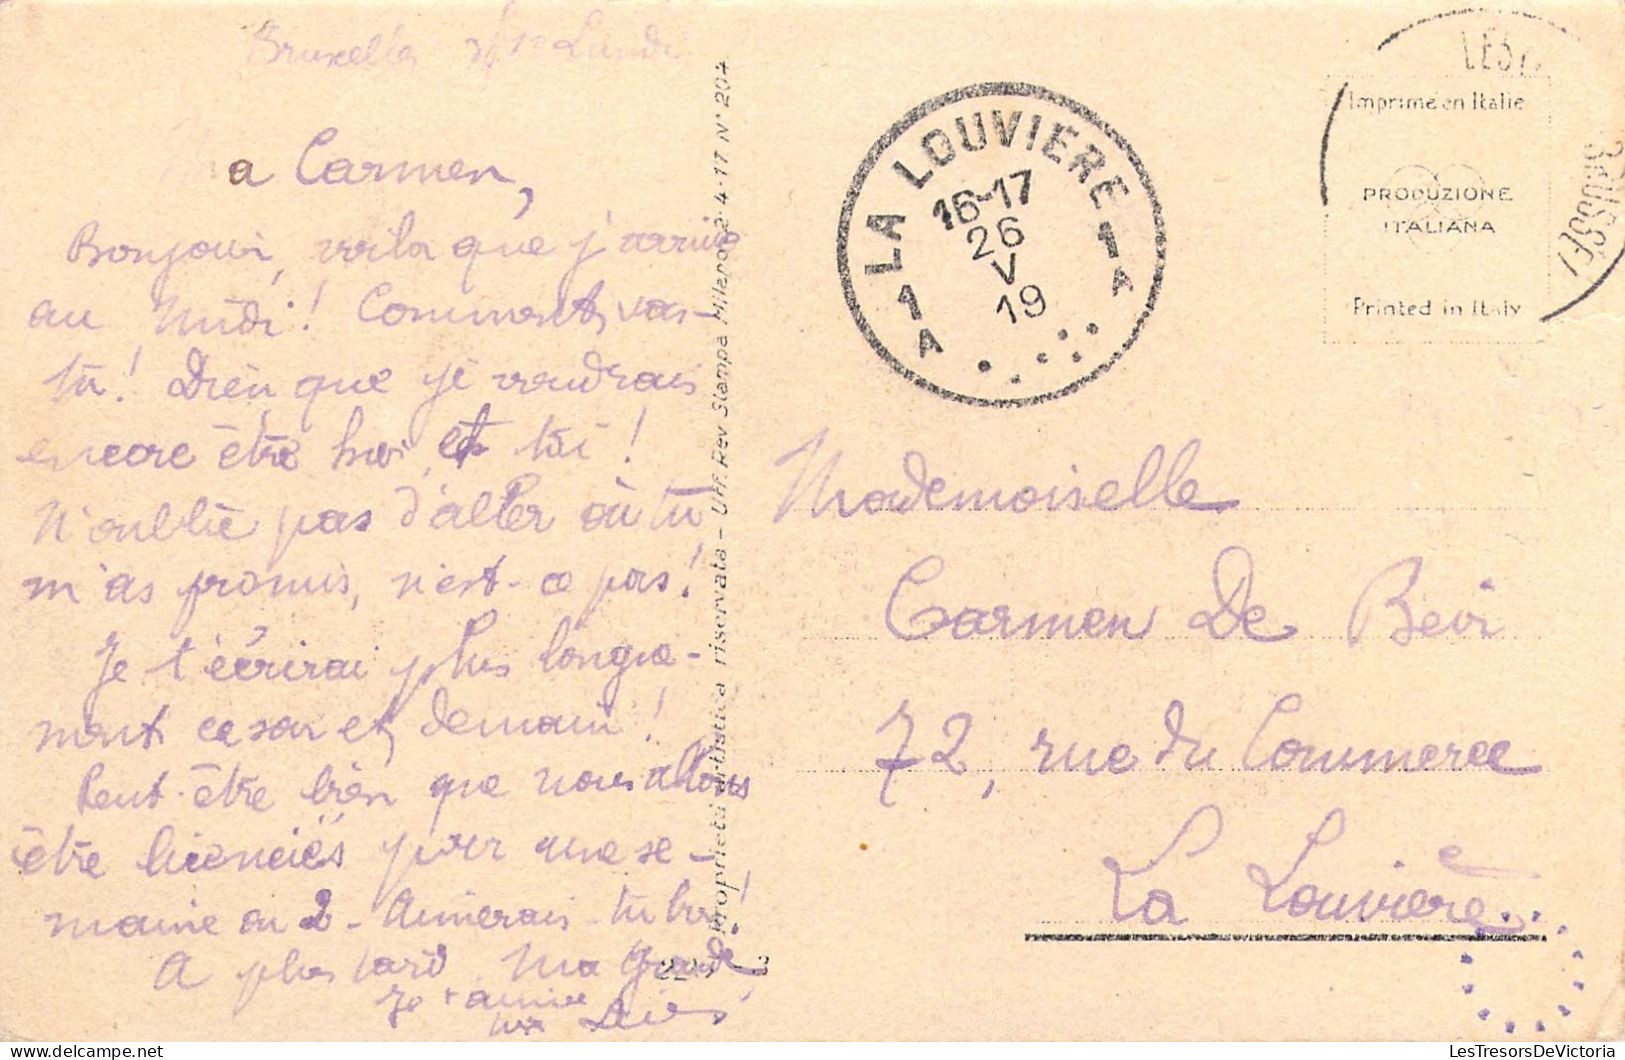 Bruxelles Lundi
Ma Carmen,
Bonjour, voila que j'arrive
au Midi! Comment vas-
tu! Dien que je voudrais
encore être hier, et toi!
N'oublie pas d'aller où tu
m'as promis, n'est-ce pas!
Je t'écrirai plus longue-
ment ce soir et demain!
Peut-être bien que nous allons
être licenciés pour une se-
maine ou 2 - Aimerais-tu
A plus tard Ma grande,
Je t'aime
Proprietà artistica riservata - Uff. Rev Stampa Milano 2-4-17 N° 204
LA LOUVIERE
16-17
26
V
19
1 A
1 A
Imprimé en Italie
PRODUZIONE
ITALIANA
Printed in Italy
Mademoiselle
Carmen De Bevi
72, rue du Commerce
La Louvière
LesTresorsDeVictoria